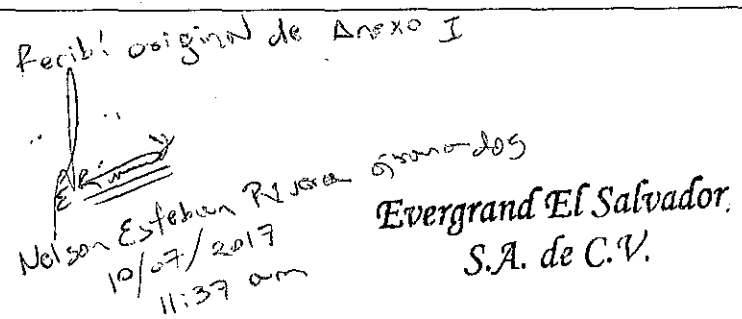 Recibí original de Anexo I
Nelson Esteban Rivera Granados
10/07/2017
11:37 am
Evergrand El Salvador,
S.A. de C.V.